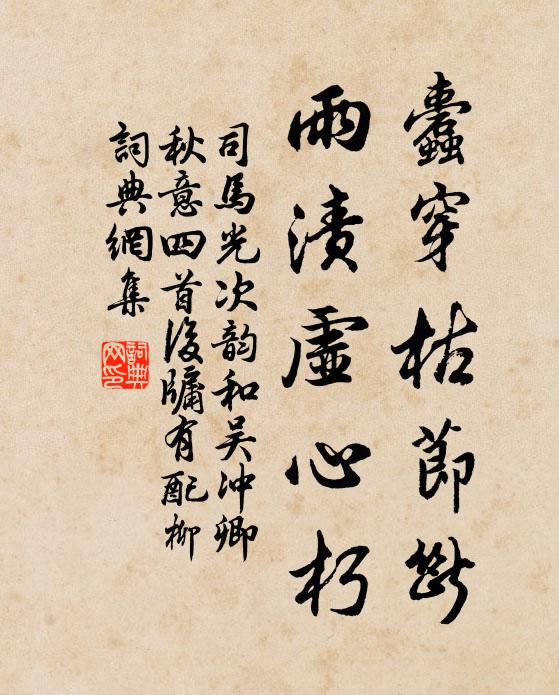 蠹穿枯莭斷
雨漬虛心朽
司馬光次韵和吴冲卿
秋意四首後牖有配柳
詞典網集
詞典网印